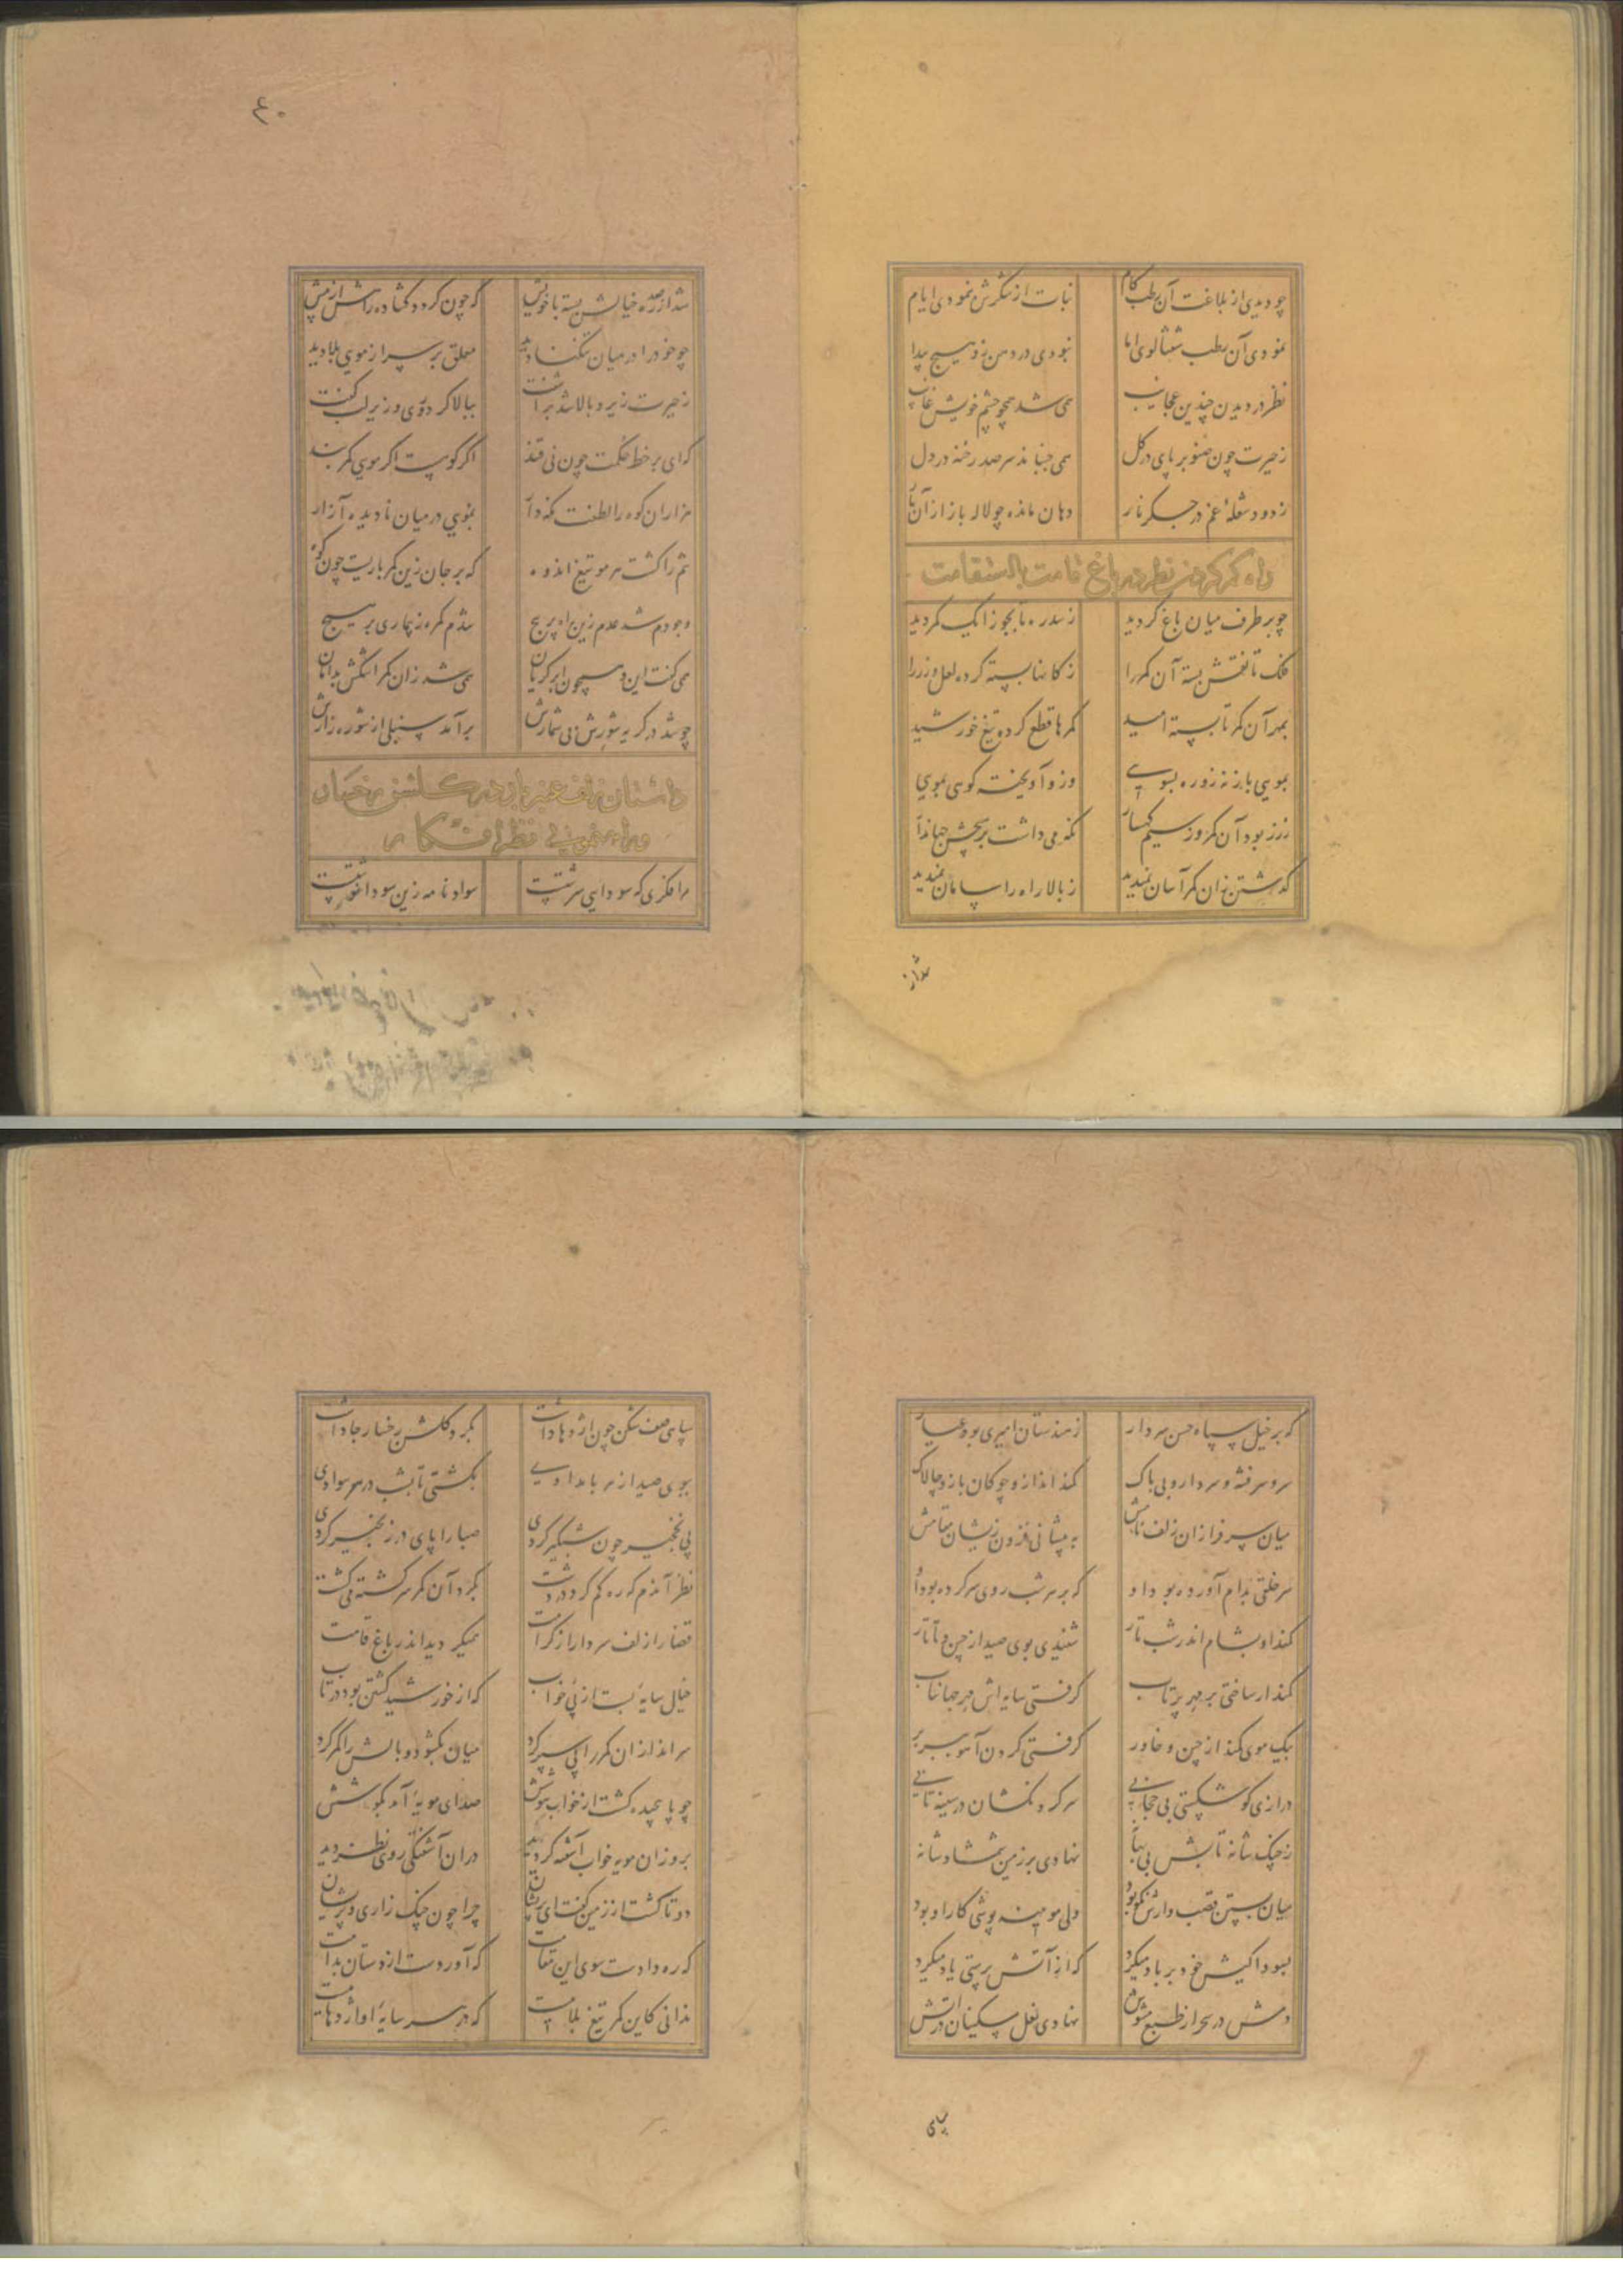 چو دیدی از بلاغت آن رطب کام نبات از شکرش نمودی ایام
نمودی آن رطب شفتالوی اما نبودی در دهن زو هیچ پیدا
نظر در دیدن چندین عجایب همی شد همچو چشم خویش غایب
ز حیرت چون صنوبر پای در گل همی جنباند سر صد رخنه در دل
ز دود شعلهٔ غم در جگر نار دهان مانده چو لاله باز از آن نار
راه کمر کردن نظر در باغ قامت با استقامت
چو بر طرف میان باغ گردید ز سد ره تا بجوزا یک کمر دید
فلک تا نقش بسته آن کمر را ز کانها بسته کرده لعل و زر را
بمهر آن کمر تا بسته امید کمرها قطع کرده تیغ خورشید
بمویی باز نه زو ره بسویی وزو آویخته کوهی بمویی
ز زر بود آن کمر وز سیم کهسار نکه می داشت بر هیچش جهاندار
گذشتن زان کمر آسان نمیدید ز بالا راه را پایان نمیدید
شد از
۴۰
شد از ره خیالش بسته با خویش که چون گردد گشاده راهش از پیش
چو خود را در میان تنگنا دید معلق بر سر از مویی بلا دید
ز حیرت زیر و بالا شد برآشفت ببالا کرد روی و زیر لب گفت
که ای بر خط حکمت چون نی قند اگر کوهست اگر موی کمربند
هزاران کوه را لطفت نکه دار بمویی در میان نادیده آزار
تنم را گشت هر مو تیغ اندوه که بر جان زین کمر باریست چون کوه
وجودم شد عدم زین راه پر پیچ شدم کمره ز بیماری بر هیچ
همی گفت این و همچون ابر گریان همی شد زان کمر اشکش بدامان
چو شد در گریه شورش بی شمارش برآمد سنبلی از شوره زارش
داستان زلف عنبربار در گلشن رخسار
و راه نمونی نظر افکار
مرا فکری که سودایی سرشتست سواد نامه زین سودا نوشتست
که بر خیل سپاه حسن سردار ز هندستان امیری بود عیار
سر و سر فتنه و سردار و بی باک کمند انداز و چوکان باز و چالاک
میان سرفرازان زلف نامش به پیشانی فزون زیشان مقامش
سر خلقی بدام آورده بود او که بر هر شب روی سر کرده بود او
کمند او بشام اندر شب تار شنیدی بوی صید از چین و تاتار
کمند ار ساختی بر مهر پرتاب گرفتی سایه اش مهر جهانتاب
بیک موی کمند از چین و خاور گرفتی گردن آهو سربسر
درازی کو شکستی بی حجابی سر گردنکشان در سینه تابی
ز چنک شانه تابش بی بها نهادی بر زمین شمشاد شانه
میان بستن قصب وارش نکو بود ولی مویینه پوشی کار او بود
بسودا کیش خود بر باد میکرد که از آتش پرستی یاد میکرد
دمش در سحر از طبع مشوش نهادی نعل مسکینان در آتش
سپاهی
سپاهی صف شکن چون اژدها داشت بگرد گلشن رخسار جا داشت
ببوی صید از هر بامدادی بگشتی تا بشب در هر سوادی
پی نخجیر چون شبگیر کردی صبا را پای در زنجیر کردی
نظر آندم که ره گم کرد در دشت بگرد آن کمر سرگشته میگشت
قضا را زلف سردار از کرامت همیگردید اندر باغ قامت
خیال سایهٔ بست از پی خواب که از خورشید گشتن بود در تاب
سرانداز آن کمر را پی سپر کرد میان بگشود و بالش را کمر کرد
چو پا پیچیده گشت از خواب هوشش صدای مویهٔ آمد بگوشش
بروزان مویه خواب آشفته گردید در آن آشفتگی روی نظر دید
دوتا گشت از زمین گفت ای پریشان چرا چون چنک زاری و پریشان
که ره دادت سوی این مقامت که آوردت ازدستان بدامت
ندانی کاین کمر تیغ بلاهست که در هر سایهٔ او اژدهاست